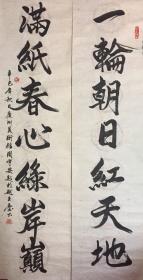 一輪朝日紅天地
滿紙春心綠岸巔